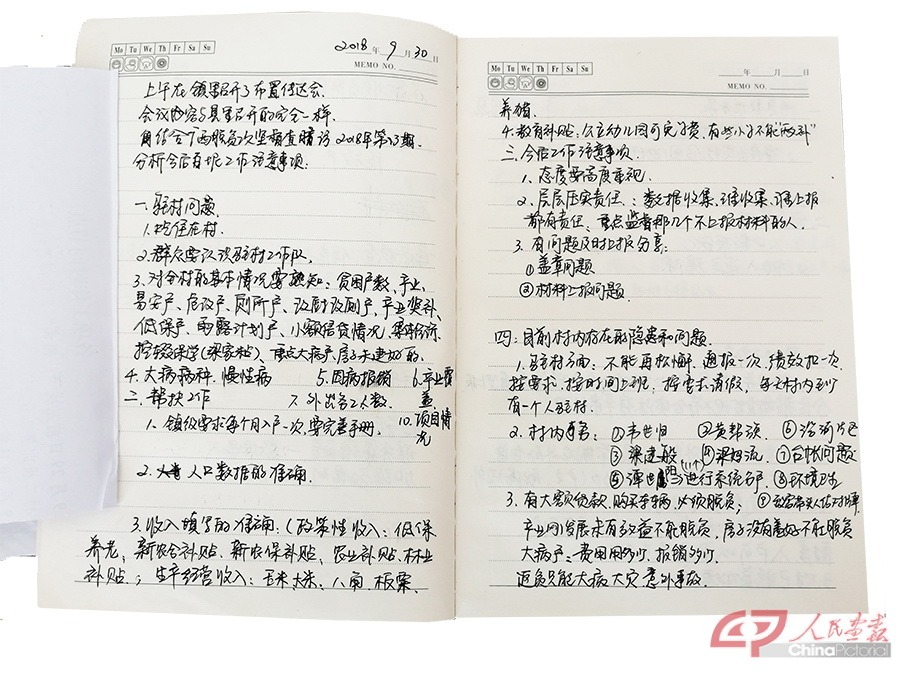 Mo Tu We Th Fr Sa Su
2018年9月30日
MEMO NO.
上午在镇里召开了布置传达会.
会议内容与县里召开的完全一样.
2018年第13期.
分析今后有关工作注意事项.
一. 驻村问题.
1. 吃住在村.
2. 群众要认识驻村工作队.
3. 对全村的基本情况要熟知: 贫困户数, 产业,
易安户、危改户、厕所户、改厨改厕户, 产业奖补、
低保户、雨露计划户、小额信贷情况、
控辍保学(梁家松)、重点大病户, 房子未建好的.
4. 大病病种. 慢性病 5. 因病报销 6. 产业覆盖
二. 帮扶工作 7. 外出务工人数.
1. 镇级要求每个月入户一次, 要完善手册. 10. 项目情况
2. 人口数据的准确.
3. 收入填写的准确: (政策性收入: 低保
养老、新农合补贴、新农保补贴、农业补贴、林业
补贴; 生产经营收入: 玉米、大米、八角、板栗.
Mo Tu We Th Fr Sa Su
年 月 日
MEMO NO.
养殖.
4. 教育补贴: 公立幼儿园可免学费, 有些小学不能"两补"
三. 今后工作注意事项.
1. 态度要高度重视.
2. 层层压实责任: 数据收集, 谁收集, 谁上报
都有责任. 重点监督那几个不上报材料的人.
3. 有问题及时上报分享:
① 盖章问题
② 材料上报问题.
四: 目前村内存在的隐患和问题.
1. 驻村方面: 不能再松懈. 通报一次, 绩效扣一次.
按要求、按时间上班, 按要求请假, 每天村内至少
有一个人驻村.
2. 村内事务: ① 韦世归 ② 黄帮颂. ⑥ 沿河片区
③ 梁建般 ④ 梁相流. ⑦ 台帐问题
⑤ 谭世阳 进行系统包户. ⑧ 环境卫生
3. 有大额贷款, 购买车辆, 必须脱贫;
产业刚发展未有效益不能脱贫, 房子没有善好不能脱贫
大病户: 费用用多少, 报销多少.
返贫只能大病大灾意外事故.
人民画报
China Pictorial